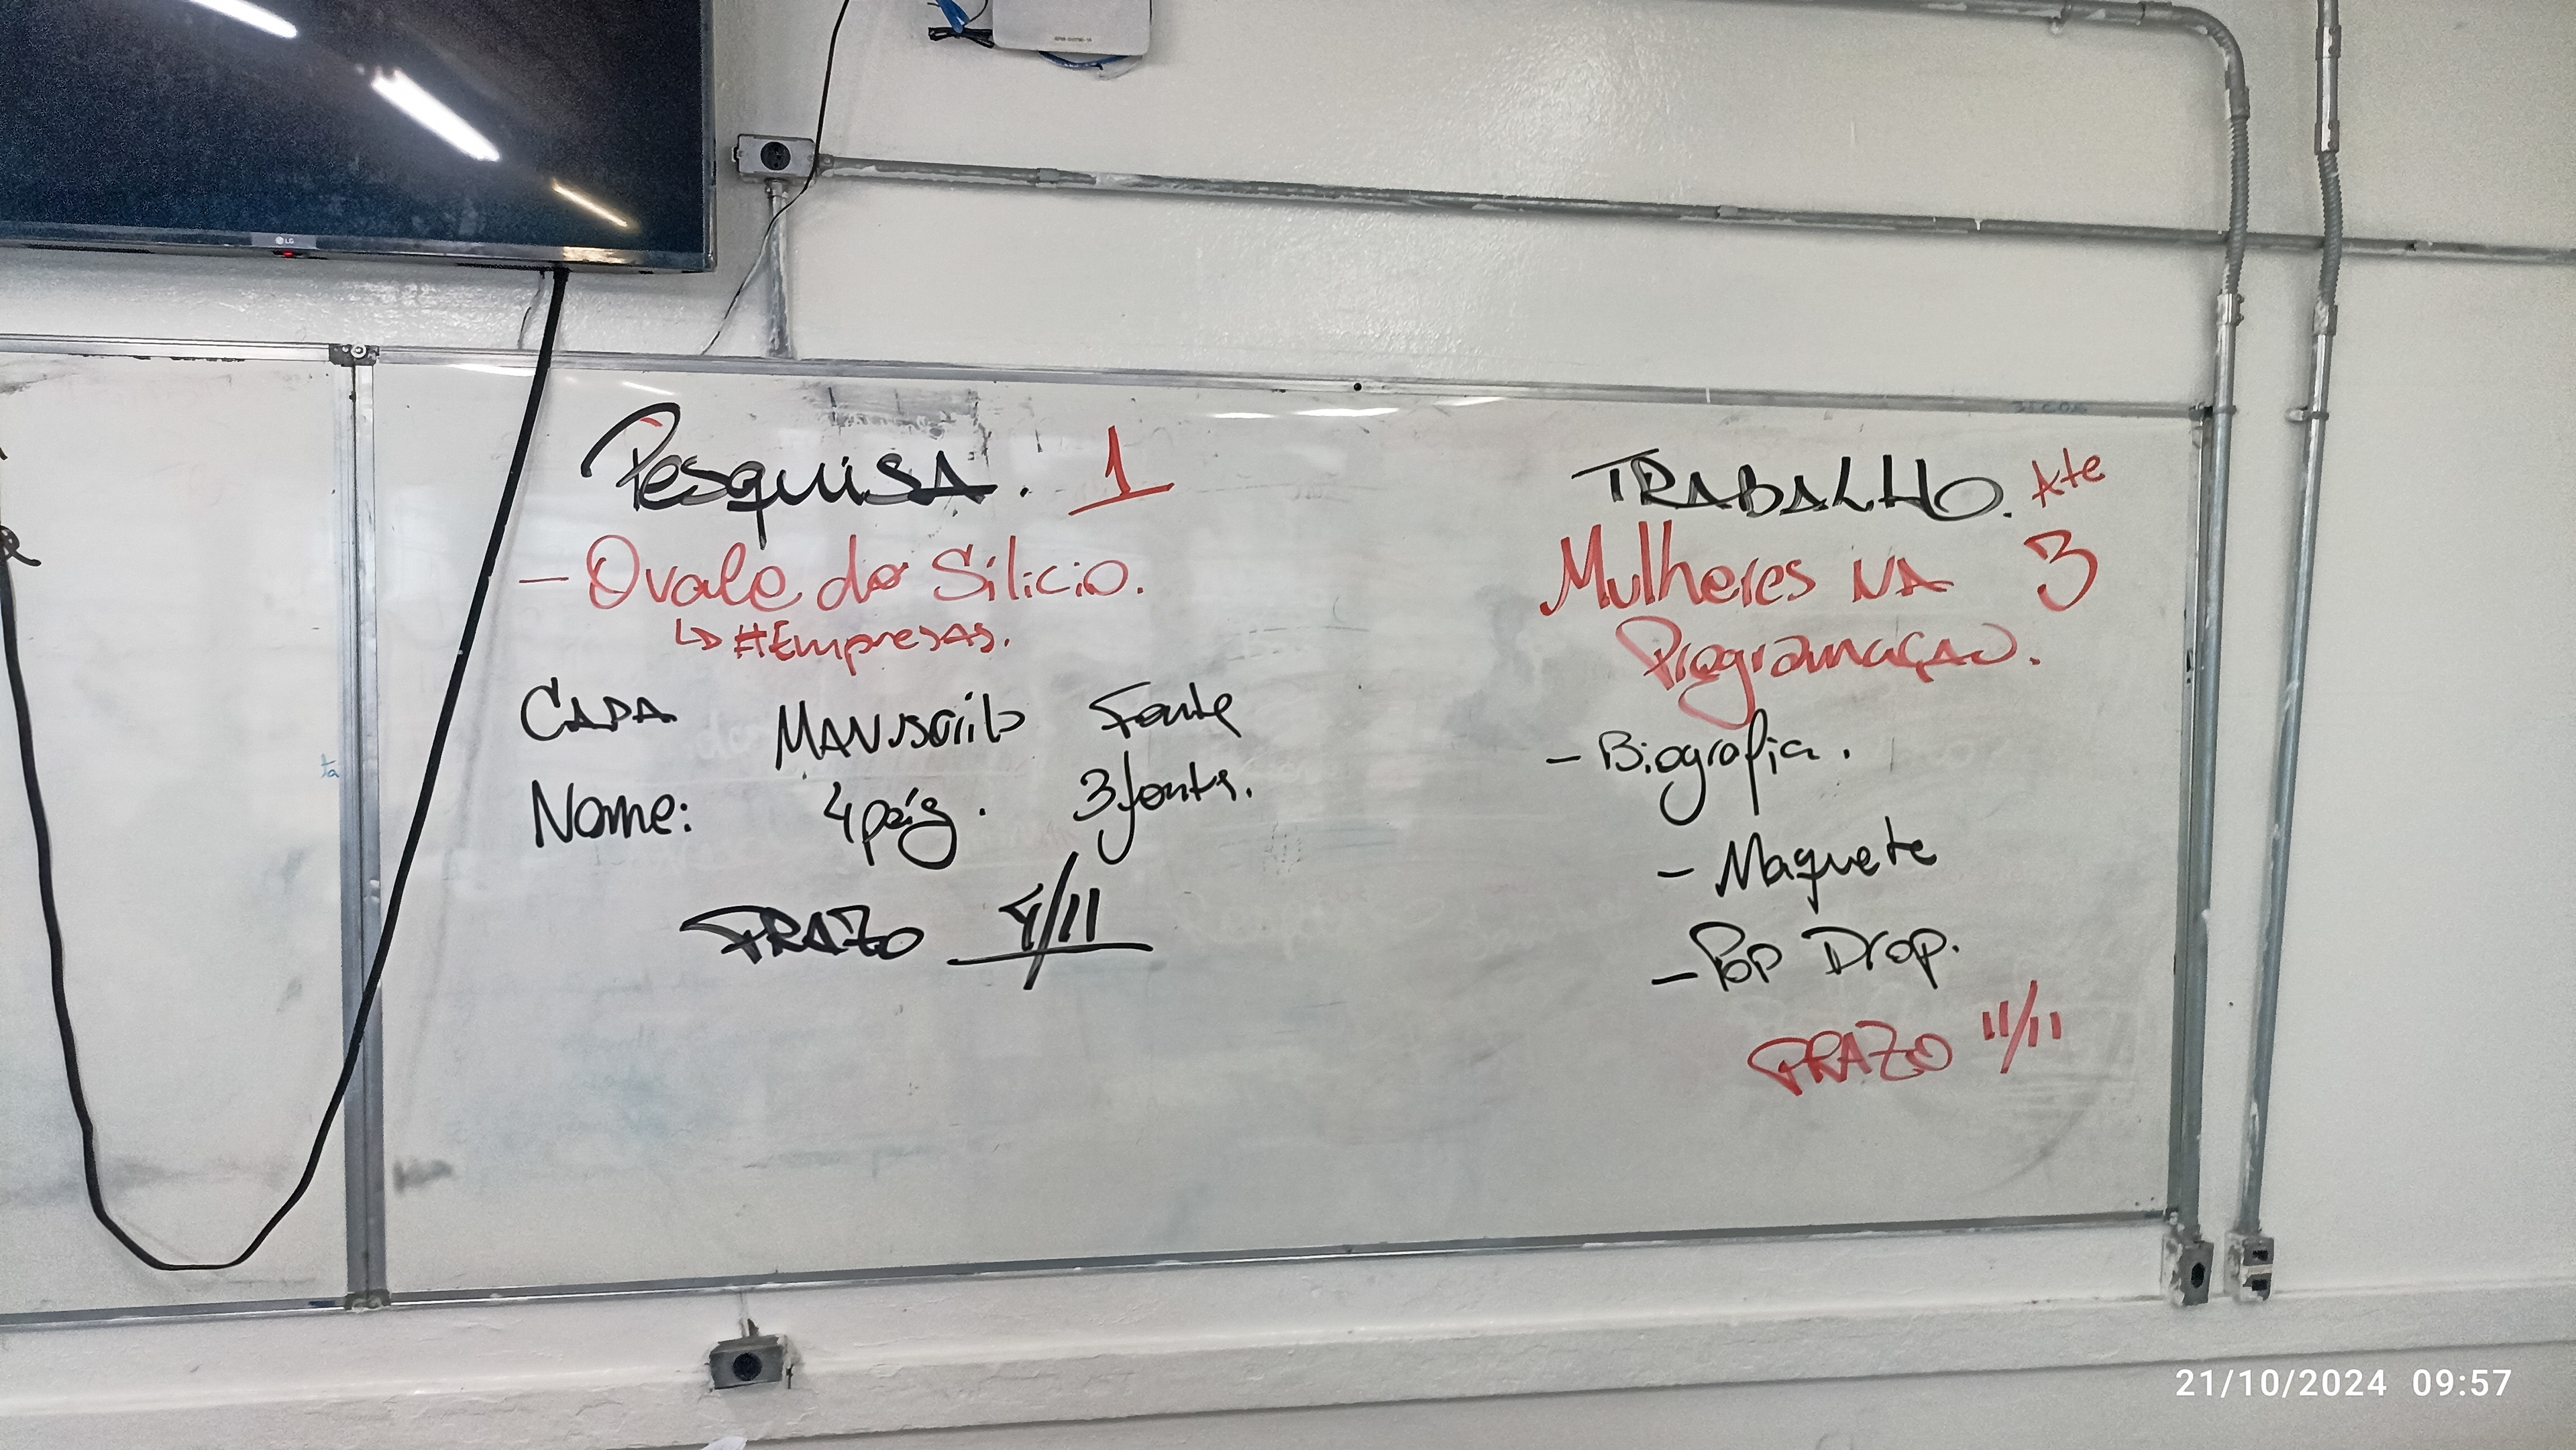 LG
Pesquisa. 1
- O vale do Silicio.
↳ #Empresas.
Capa Manuscrito Fonte
Nome: 4 pág. 3 fonts.
PRAZO 4/11
TRABALHO. Ate 3
Mulheres na
Programação.
- Biografia.
- Maquete
- Pop Drop.
PRAZO 11/11
21/10/2024 09:57